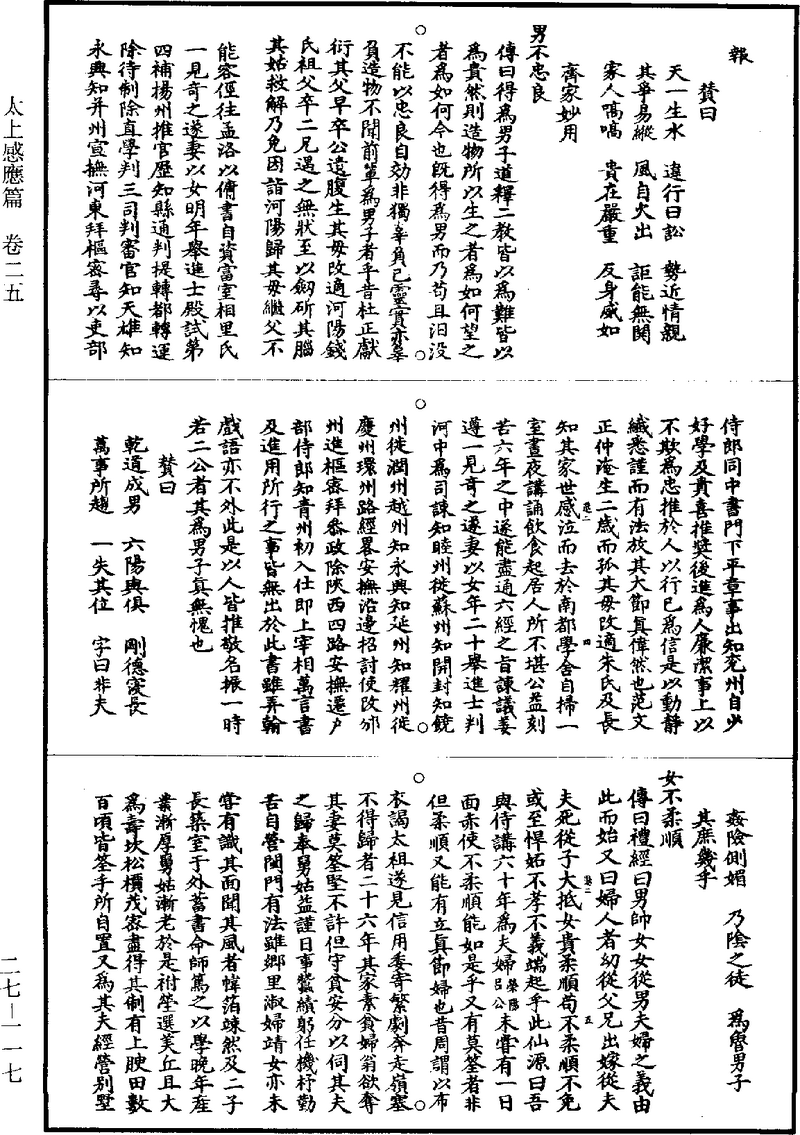 太上感應篇　卷二五
二七—一一七
報
贊曰
天一生水　違行曰訟　勢近情親
其爭易縱　風自火出　詎能無閑
家人嗃嗃　貴在嚴重　反身威如
齊家妙用
男不忠良
傳曰得為男子道釋二教皆以為難皆以
為貴然則造物所以生之者為如何望之
者為如何今也既得為男而乃苟且汩没
不能以忠良自効非獨辜負己靈實亦辜
負造物不聞前輩為男子者乎昔杜正獻
衍其父早卒公遺腹生其母改適河陽錢
氏祖父卒二兄遇之無狀至以劒斫其腦
其姑救解乃免因詣河陽歸其母繼父不
能容徑往孟洛以傭書自資富室相里氏
一見奇之遂妻以女明年舉進士殿試第
四補揚州推官歷知縣通判提轉都轉運
除待制除直學判三司判審官知天雄知
永興知并州宣撫河東拜樞密尋以吏部
侍郎同中書門下平章事出知兖州自少
好學及貴喜推奬後進為人廉潔事上以
不欺為忠推於人以行已為信是以動靜
纎悉謹而有法放其大節真偉然也范文
正仲淹生二歲而孤其母改適朱氏及長
知其家世感泣而去於南都學舍自掃一
室晝夜講誦飲食起居人所不堪公益刻
苦六年之中遂能盡通六經之旨諫議姜
遵一見奇之遂妻以女年二十舉進士判
河中為司諫知睦州徙蘇州知開封知饒
州徙潤州越州知永興知延州知耀州徙
慶州環州路經畧安撫沿邊招討使改邠
州進樞密拜叅政除陝西四路安撫遷户
部侍郎知青州初入仕即上宰相萬言書
及進用所行之事皆無出於此書雖弄翰
戲語亦不外此是以人皆推敬名振一時
若二公者其為男子真無愧也
贊曰
乾道成男　六陽與俱　剛德寖長
萬事所趨　一失其位　字曰非夫
姦險側媚　乃陰之徒　為魯男子
其庶幾乎
女不柔順
傳曰禮經曰男帥女女從男夫婦之義由
此而始又曰婦人者幼從父兄出嫁從夫
夫死從子大抵女貴柔順苟不柔順不免
或至悍妬不孝不義端起乎此仙源曰吾
與侍講六十年為夫婦滎陽吕公未甞有一日
面赤使不柔順能如是乎又有莫筌者非
但柔順又能有立真節婦也昔周謂以布
衣謁太祖遂見信用委寄繁劇奔走嶺塞
不得歸者二十六年其家素貧婦翁欲奪
其妻莫筌堅不許但守貧安分以伺其夫
之歸奉舅姑益謹日事蠶績躬任機杼勤
苦自營閨門有法雖鄉里淑婦靖女亦未
甞有識其面聞其風者幃箔竦然及二子
長築室于外蓄書命師篤之以學晩年産
業漸厚舅姑漸老於是祔塋選美丘且大
為壽坎松檟茂密盡得其制有上腴田數
百頃皆筌手所自置又為其夫經營别墅